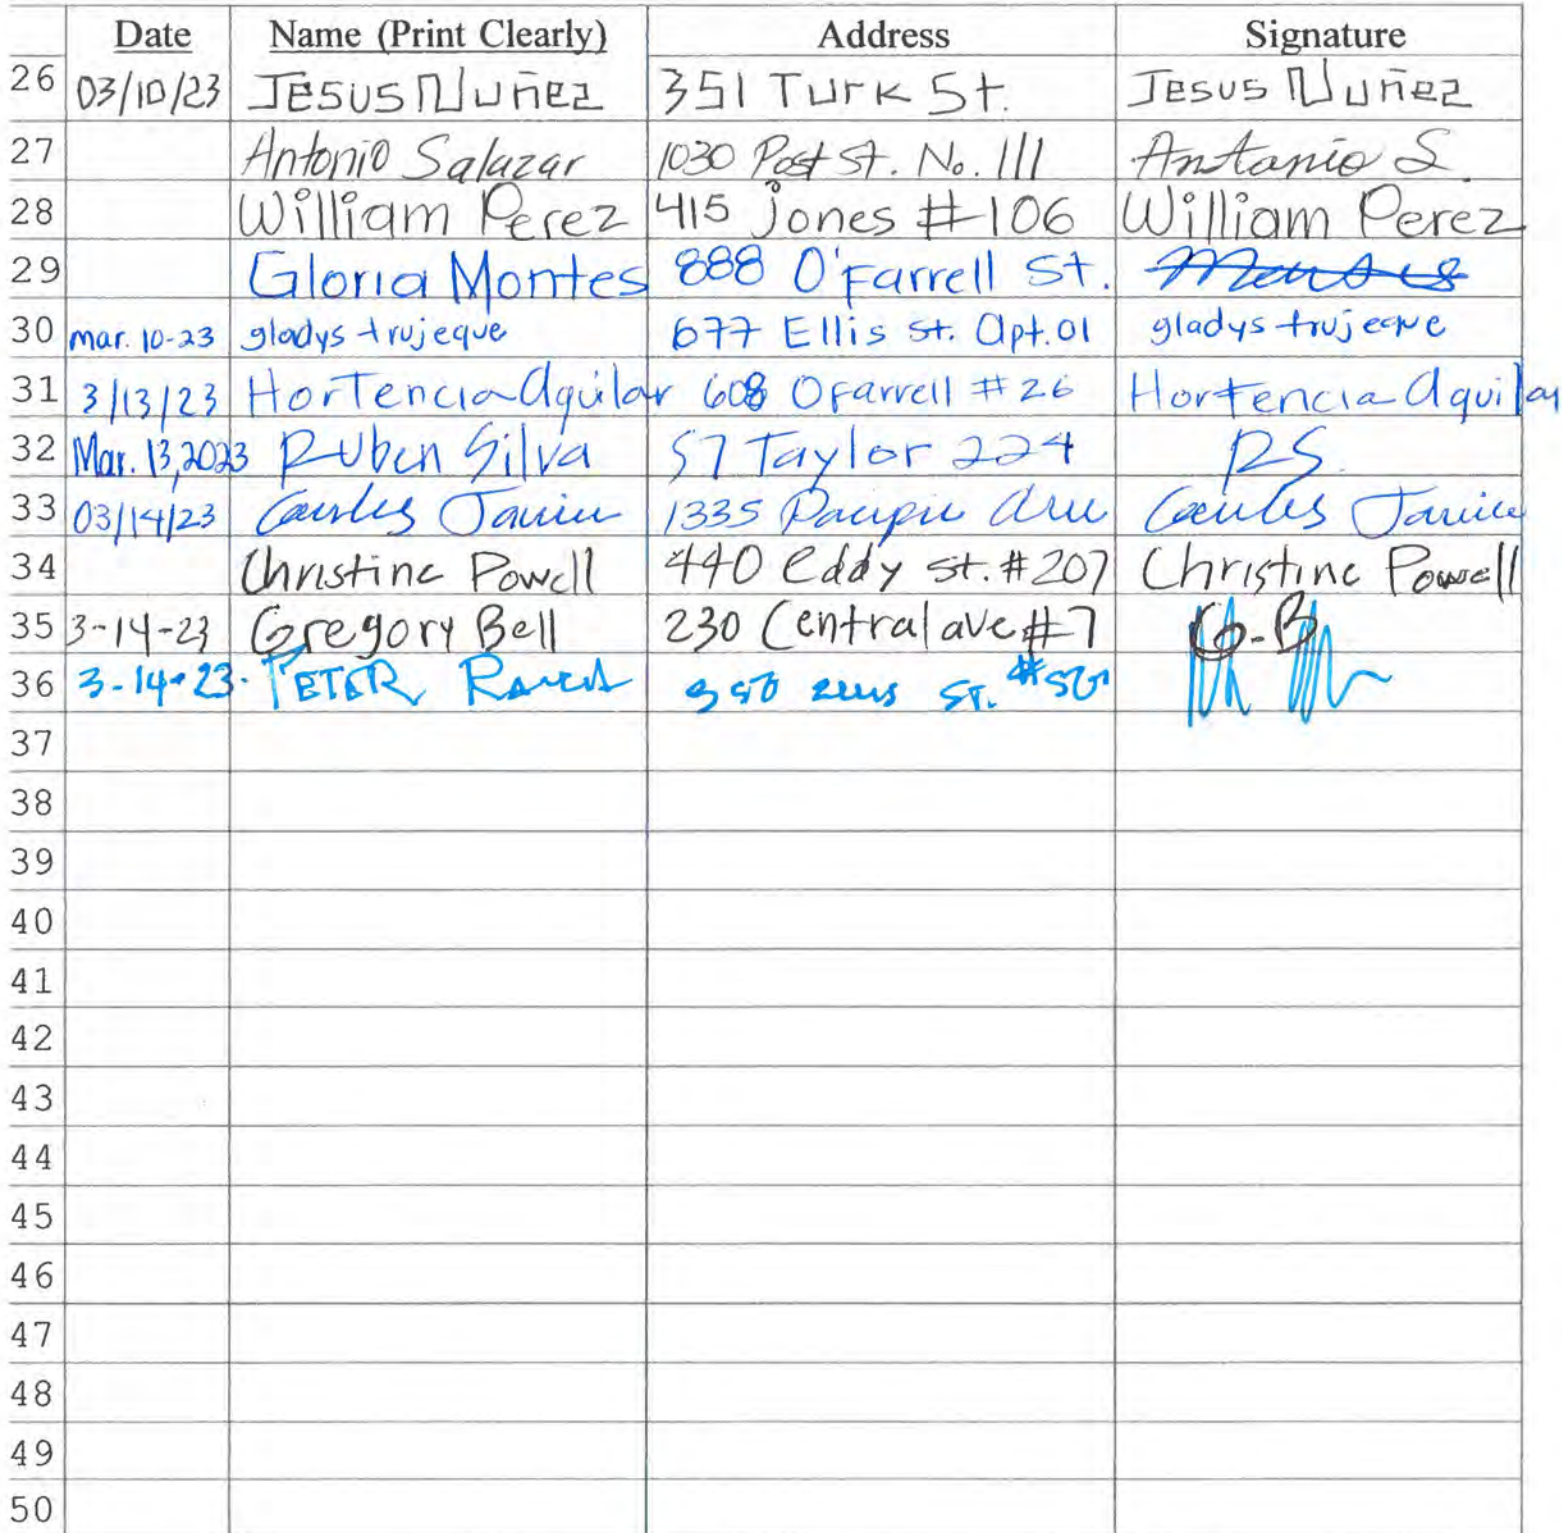 Date Name (Print Clearly) Address Signature
26 03/10/23 JESUS NUñez 351 Turk St. JESUS NUñez
27 Antonio Salazar 1030 Post St. No. 111 Antonio S.
28 William Perez 415 jones #106 William Perez
29 Gloria Montes 888 O'Farrell St.
30 mar. 10-23 gladys trujeque 677 Ellis St. Apt. 01 gladys trujeque
31 3/13/23 Hortencia Aguilar 608 OFarrell #26 Hortencia Aguilar
32 Mar. 13, 2023 Ruben Silva 57 Taylor 224 RS
33 03/14/23 1335 Pacific
34 Christine Powell 440 Eddy St. #207 Christine Powell
35 3-14-23 Gregory Bell 230 Central ave #7 G.B
36 3-14-23. PETER ST.
37
38
39
40
41
42
43
44
45
46
47
48
49
50